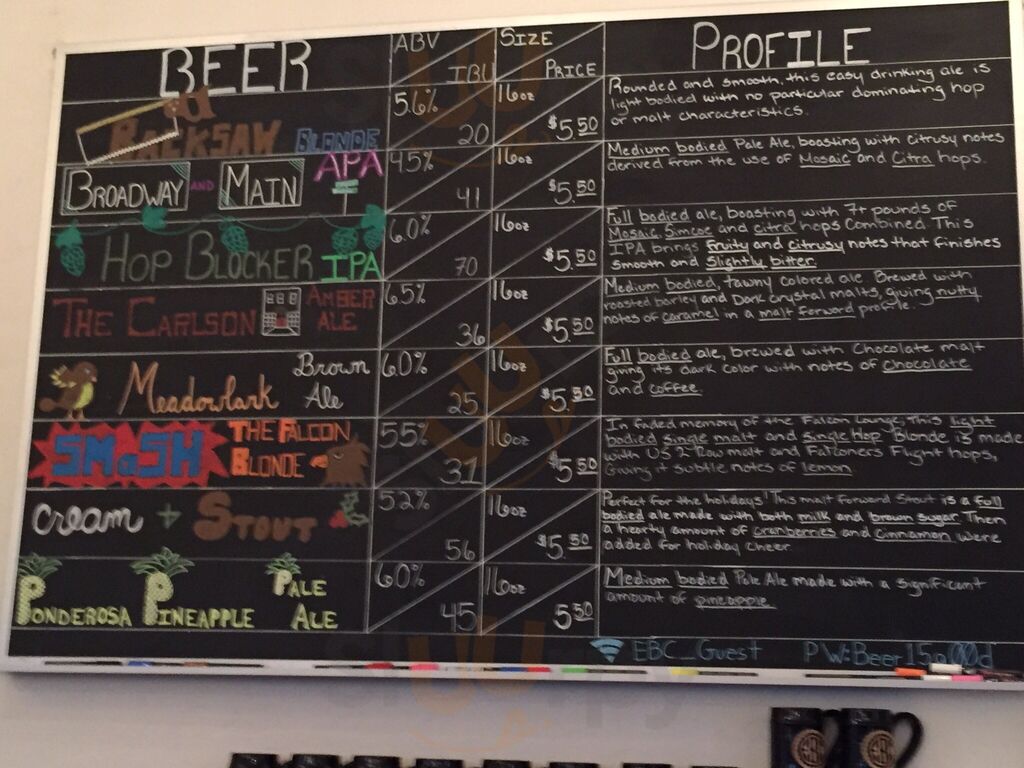 BEER
ABV
IBU
SIZE
PRICE
PROFILE
BACKSAW BLONDE
5.6%
20
16oz
$5.50
Rounded and smooth, this easy drinking ale is
light bodied with no particular dominating hop
or malt characteristics.
BROADWAY AND MAIN APA
4.5%
41
16oz
$5.50
Medium bodied Pale Ale, boasting with citrusy notes
derived from the use of Mosaic and Citra hops.
HOP BLOCKER IPA
6.0%
70
16oz
$5.50
Full bodied ale, boasting with 7+ pounds of
Mosaic, Simcoe and citra hops combined. This
IPA brings fruity and citrusy notes that finishes
smooth and slightly bitter.
THE CARLSON AMBER ALE
6.5%
36
16oz
$5.50
Medium bodied, tawny colored ale. Brewed with
roasted barley and Dark crystal malts, giving nutty
notes of caramel in a malt forward profile.
Meadowlark Brown Ale
6.0%
25
16oz
$5.50
Full bodied ale, brewed with Chocolate malt
giving its dark color with notes of chocolate
and coffee.
SMaSH THE FALCON BLONDE
5.5%
31
16oz
$5.50
In faded memory of the Falcon Lounge, This light
bodied single malt and single Hop Blonde is made
with US 2 Row malt and Falconers Flight hops,
Giving it subtle notes of lemon
cream + STOUT
5.2%
56
16oz
$5.50
Perfect for the holidays! This malt forward Stout is a full
bodied ale made with both milk and brown sugar. Then
a hearty amount of cranberries and cinnamon were
added for holiday cheer.
PONDEROSA PINEAPPLE PALE ALE
6.0%
45
16oz
5.50
Medium bodied Pale Ale made with a significant
amount of pineapple.
EBC_Guest PW:Beer15g00d